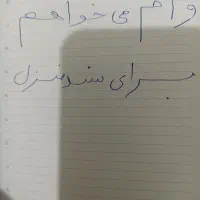 وام می خواهم
برای سند منزل